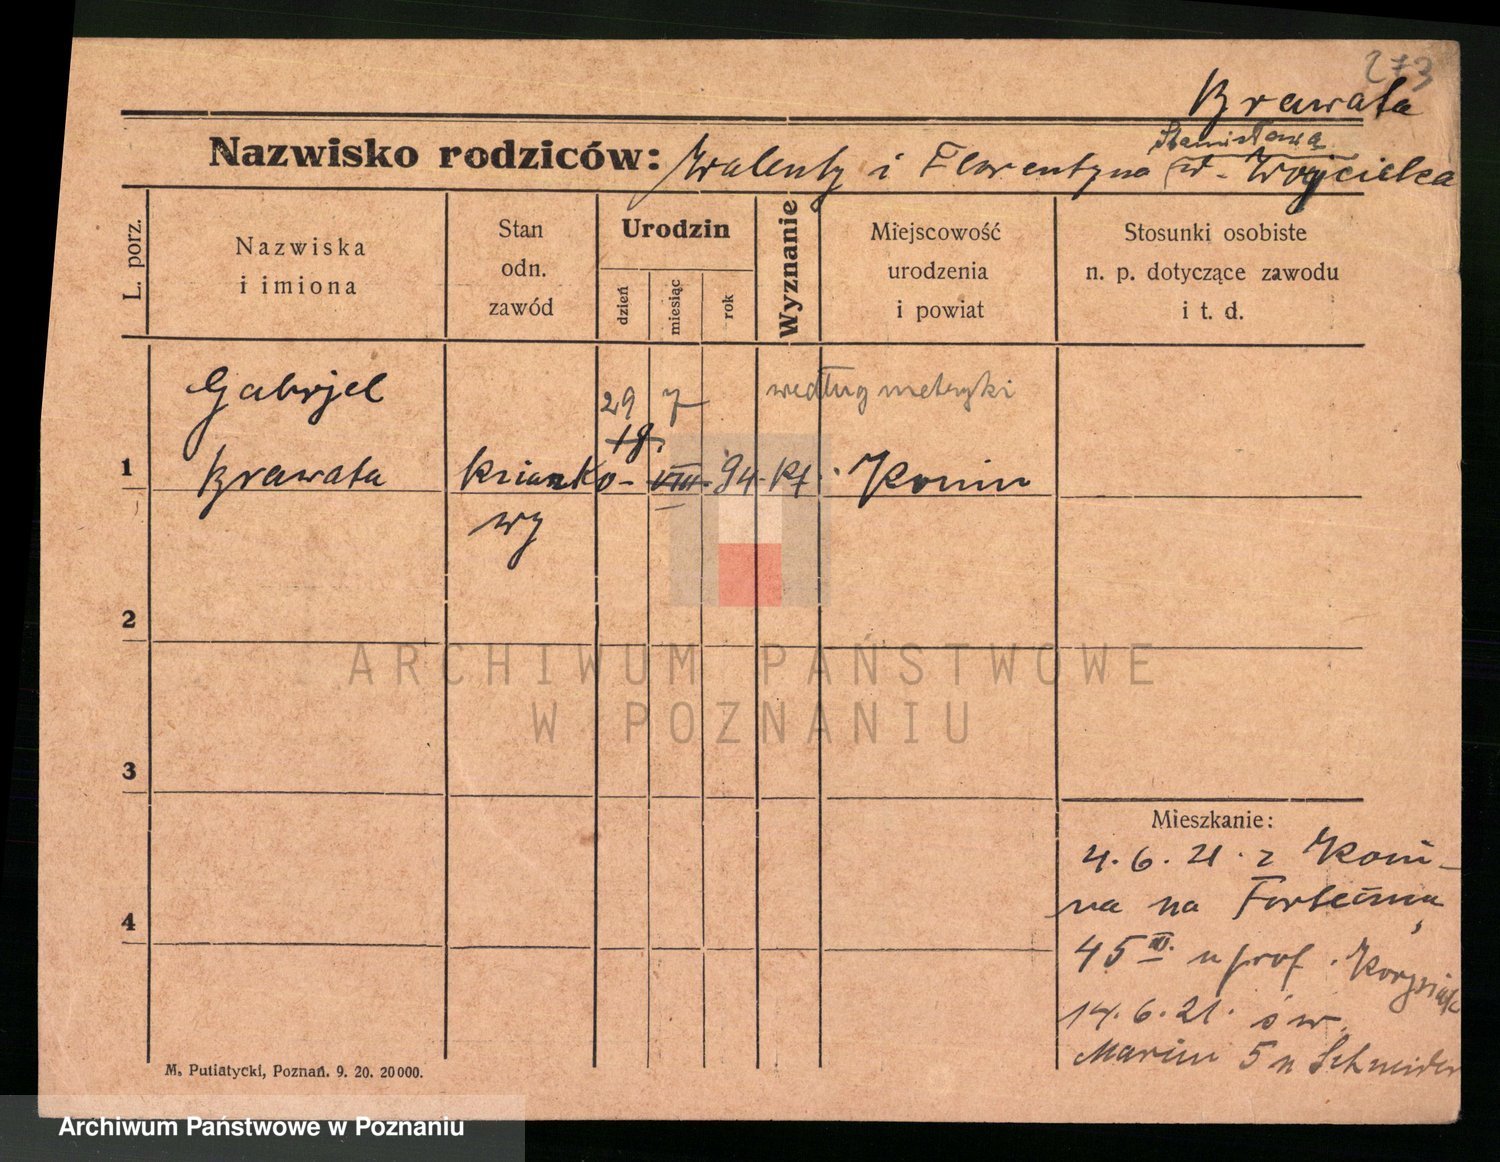 273
Brawata
Stanisława
Nazwisko rodziców: Walenty i Florentyna
L. porz.
Nazwiska
i imiona
Stan
odn.
zawód
Urodzin
dzień
miesiąc
rok
Wyznanie
Miejscowość
urodzenia
i powiat
Stosunki osobiste
n. p. dotyczące zawodu
i t. d.
Gabrjel
29 7 według metryki
18.
1 Brawata VIII. 94. kt. Konin
wy
2
3
4
Mieszkanie:
4. 6. 21. z Koni-
na na Forteczną
45 III. u prof.
14. 6. 21. św.
Marcin 5 u Schneider
M. Putiatycki, Poznań. 9. 20. 20000.
ARCHIWUM PAŃSTWOWE
W POZNANIU
Archiwum Państwowe w Poznaniu